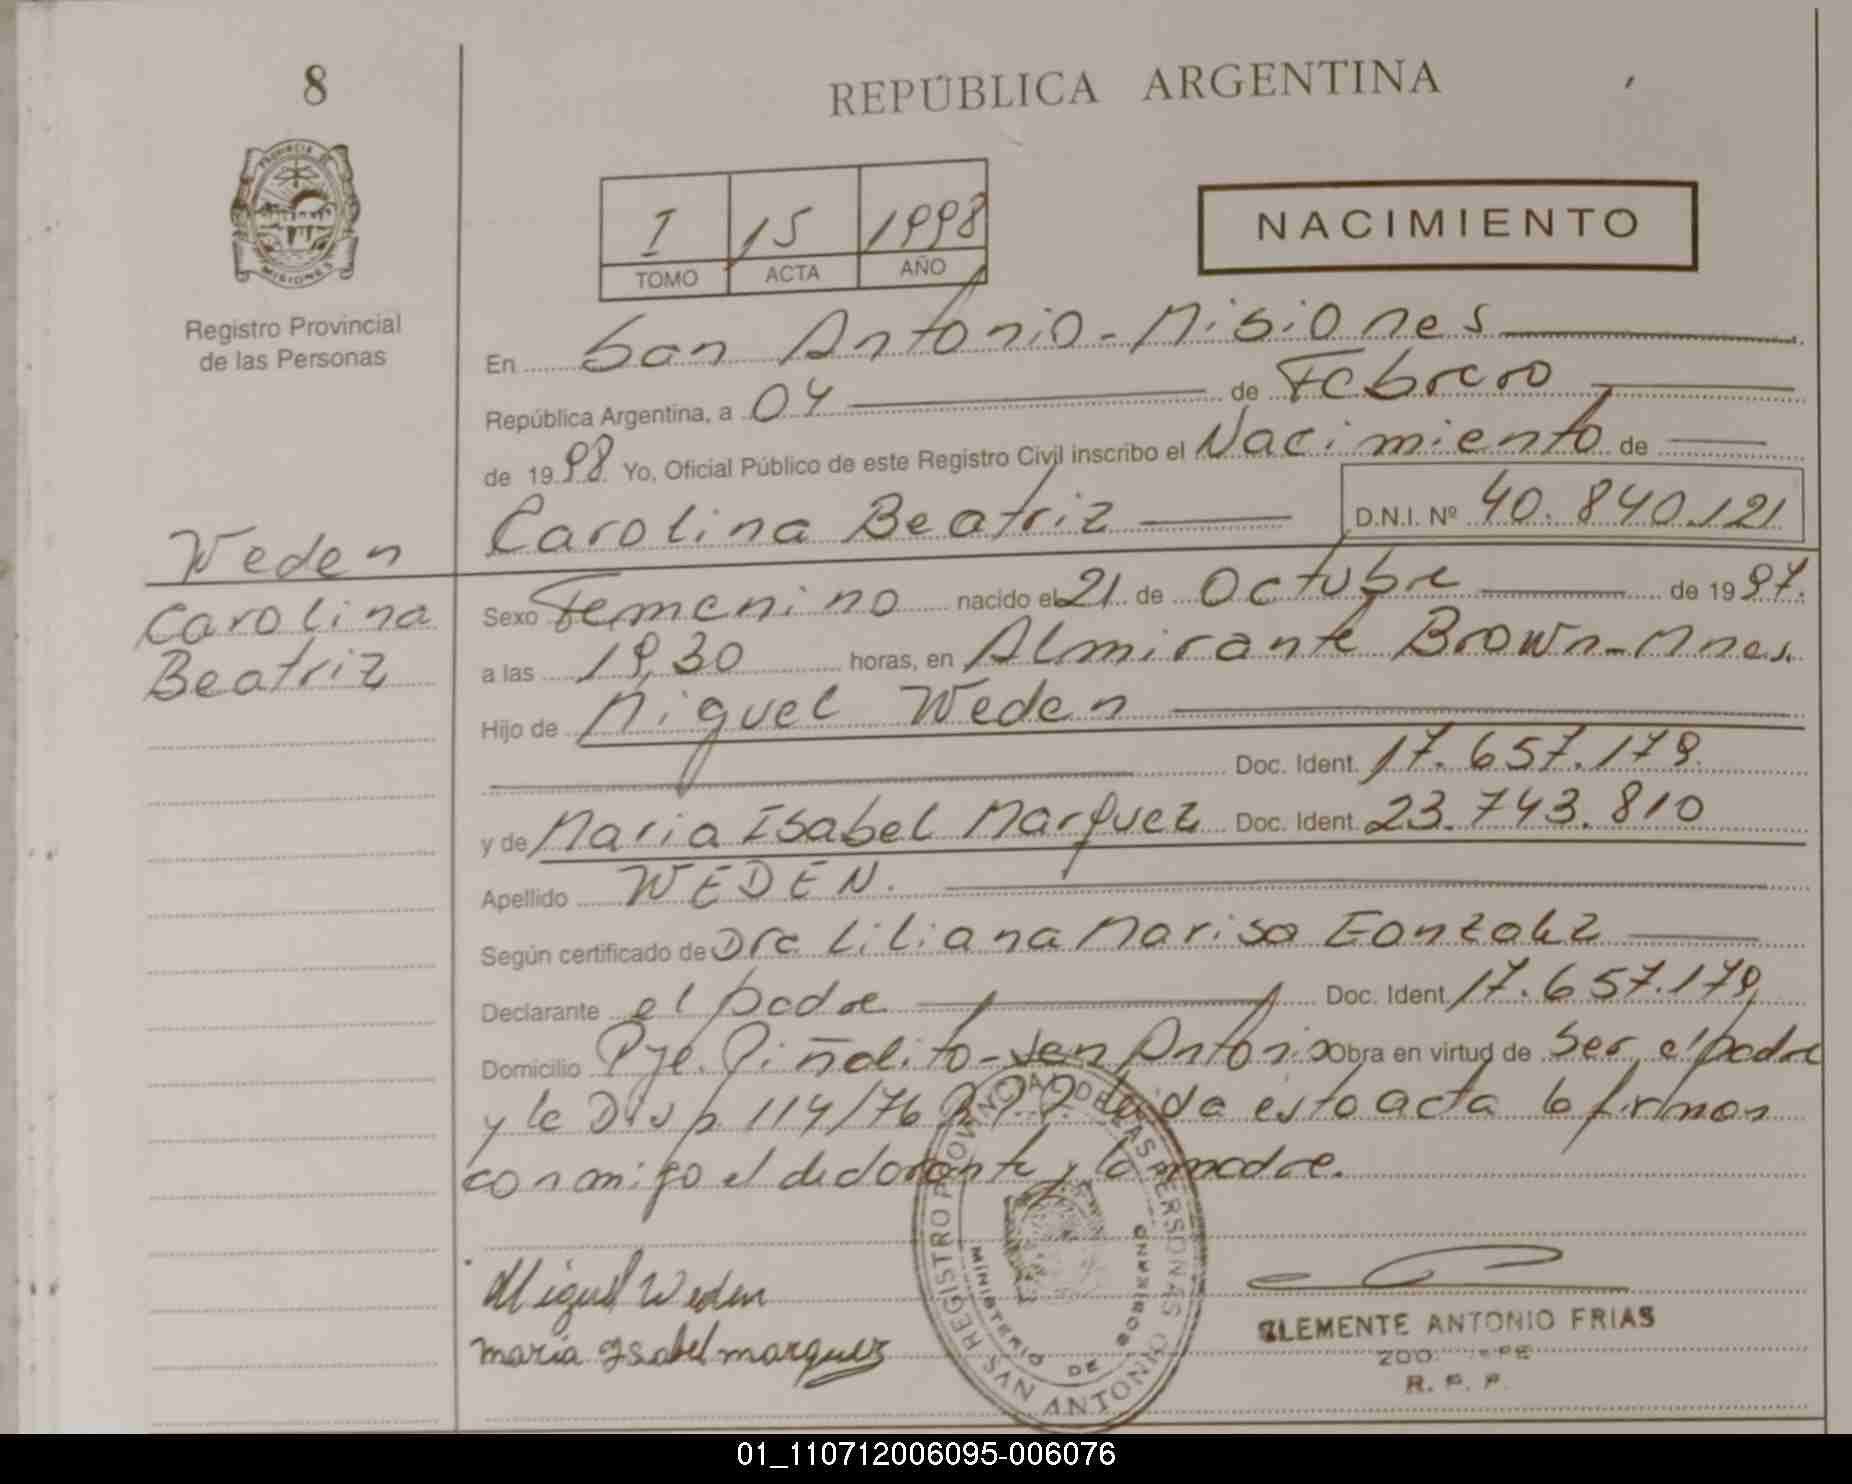 8
REPÚBLICA ARGENTINA
PROVINCIA DE
MISIONES
Registro Provincial
de las Personas
I 15 1998
TOMO ACTA AÑO
NACIMIENTO
En San Antonio - Misiones
República Argentina, a 04 de Febrero
de 1998 Yo, Oficial Público de este Registro Civil inscribo el Nacimiento de
Carolina Beatriz D.N.I. Nº 40.840.121
Weden
Carolina
Beatriz
Sexo Femenino nacido el 21 de Octubre de 1997.
a las 19,30 horas, en Almirante Brown - Mnes.
Hijo de Miguel Weden
Doc. Ident. 17.657.179.
y de Maria Isabel Marquez Doc. Ident. 23.743.810
Apellido WEDEN.
Según certificado de Dra. Liliana Marisa Gonzalez
Declarante el padre Doc. Ident. 17.657.179,
Domicilio Pje. Piñalito - San Antonio Obra en virtud de Ser el padre
y la Disp. 114/76 Leida esta acta la firman
conmigo el declarante y la madre.
Miguel Weden
maria Ysabel marquez
REGISTRO PROVINCIAL DE LAS PERSONAS
MINISTERIO DE GOBIERNO
SAN ANTONIO
CLEMENTE ANTONIO FRIAS
R. P. P.
01_110712006095-006076